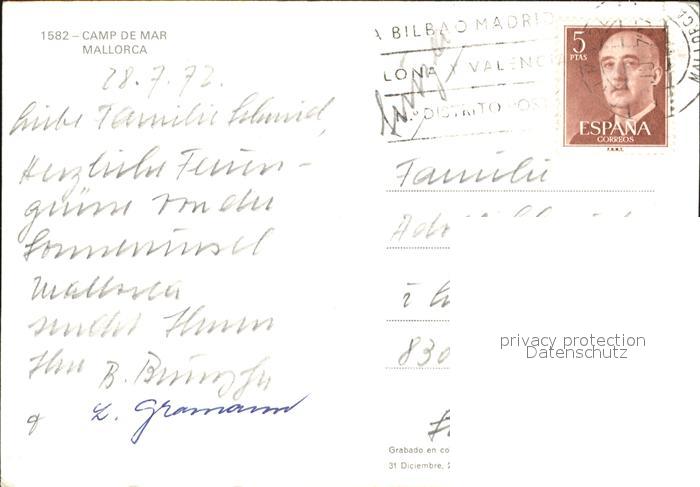 1582 – CAMP DE MAR
MALLORCA
28.7.72
Liebe Familie Schmid,
Herzliche Ferien-
grüsse von der
Sonneninsel
Mallorca
sendet Ihnen
Ihr B.
L. Gramann
A BILBAO MADRID
LONA Y VALENCI
N.º DISTRITO POST
5
PTAS
ESPAÑA
CORREOS
F.N.M.T.
Familie
Ado
830
privacy protection
Datenschutz
Grabado en co
31 Diciembre,